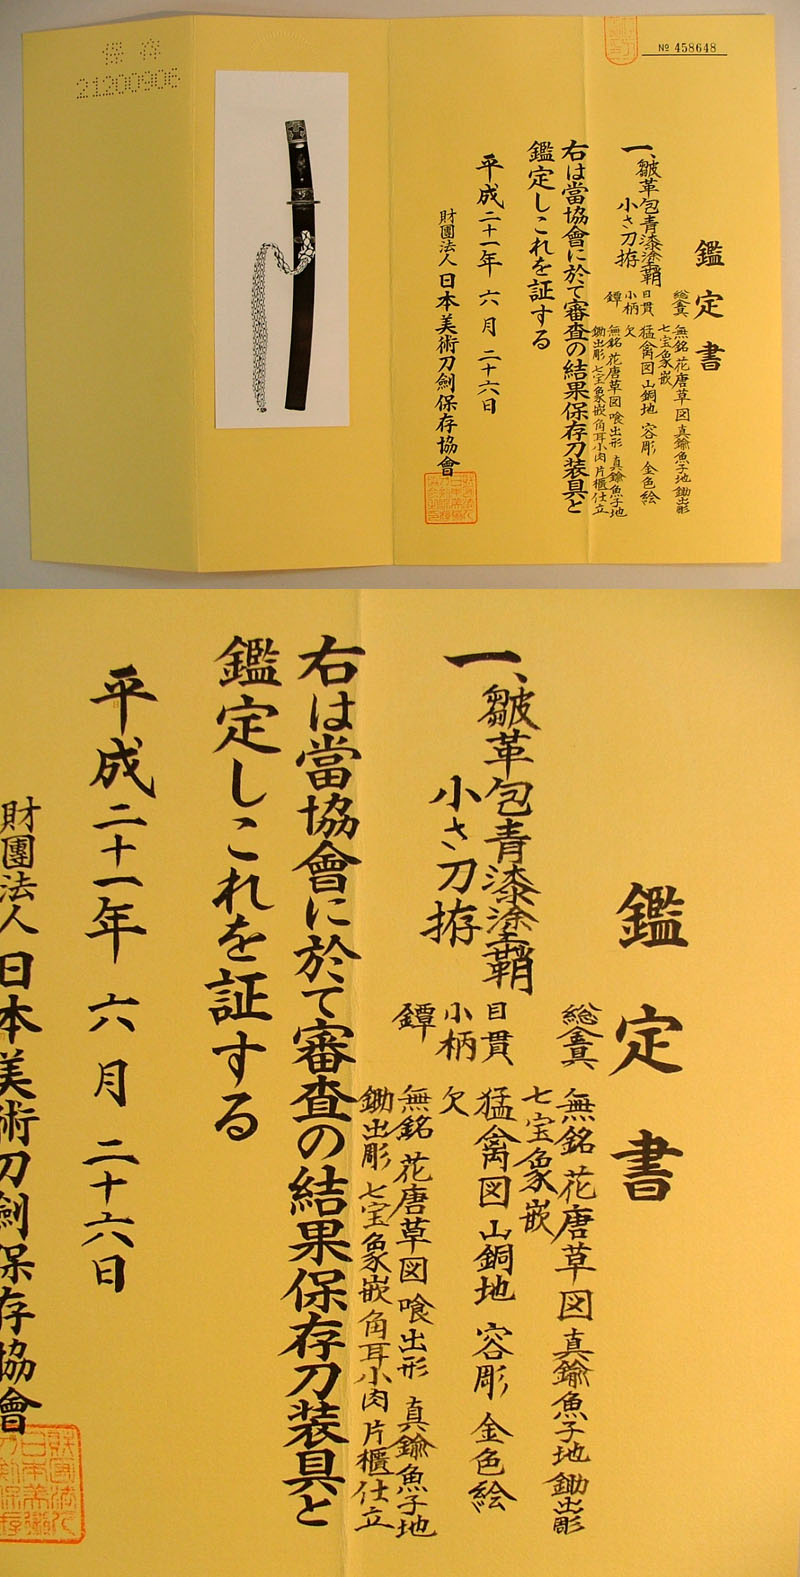 保存
21200906
№ 458648
鑑定書
一、皺革包青漆塗鞘
小さ刀拵
総金具 無銘 花唐草図 真鍮魚子地 鋤出彫
七宝象嵌
目貫 猛禽図 山銅地 容彫 金色絵
小柄 欠
鐔 無銘 花唐草図 喰出形 真鍮魚子地
鋤出彫 七宝象嵌 角耳小肉 片櫃仕立
右は當協會に於て審査の結果保存刀装具と
鑑定しこれを証する
平成二十一年 六月 二十六日
財團法人 日本美術刀劍保存協會
鑑定書
一、皺革包青漆塗鞘
小さ刀拵
総金具 無銘 花唐草図 真鍮魚子地 鋤出彫
七宝象嵌
目貫 猛禽図 山銅地 容彫 金色絵
小柄 欠
鐔 無銘 花唐草図 喰出形 真鍮魚子地
鋤出彫 七宝象嵌 角耳小肉 片櫃仕立
右は當協會に於て審査の結果保存刀装具と
鑑定しこれを証する
平成二十一年 六月 二十六日
財團法人 日本美術刀劍保存協會